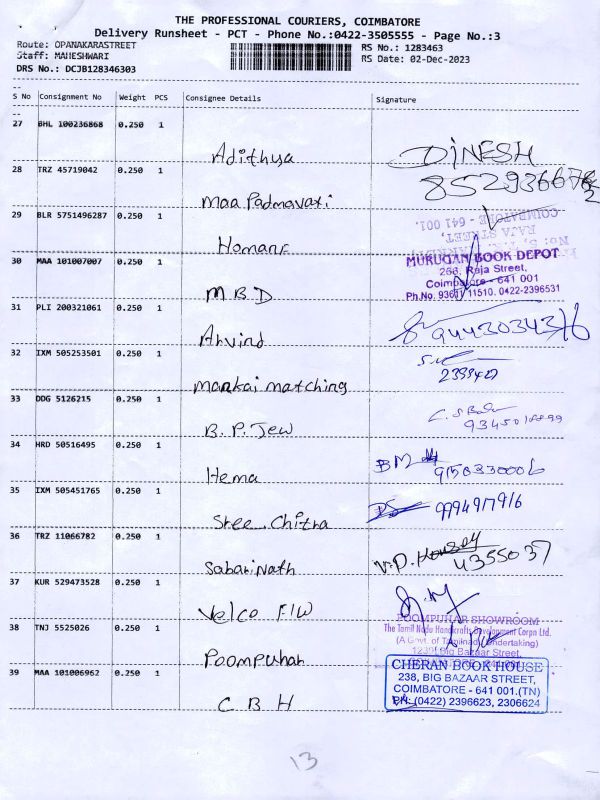 THE PROFESSIONAL COURIERS, COIMBATORE
Delivery Runsheet - PCT - Phone No.:0422-3505555 - Page No.:3
Route: OPANAKARASTREET
RS No.: 1283463
Staff: MAHESHWARI
RS Date: 02-Dec-2023
DRS No.: DCJB128346303
S No Consignment No Weight PCS Consignee Details Signature
27 BHL 100236868 0.250 1
Adithya DINESH
28 TRZ 45719042 0.250 1
Maa Padmavati
29 BLR 5751496287 0.250 1
COIMBATORE - 641 001.
RAJA STREET,
30 MAA 101007007 0.250 1
MURUGAN BOOK DEPOT
266, Raja Street,
Coimbatore - 641 001
M.B.D Ph.No. 11510, 0422-2396531
31 PLI 200321061 0.250 1
Arvind 9443034376
32 IXM 505253501 0.250 1
mankai matching
33 DDG 5126215 0.250 1
B. P. Jew
34 HRD 50516495 0.250 1
Hema BM 9150330006
35 IXM 505451765 0.250 1
Sree Chitra 9994917916
36 TRZ 11066782 0.250 1
Sabarinath 4355037
37 KUR 529473528 0.250 1
Velco F/W
POOMPUHAR SHOWROOM
38 TNJ 5525026 0.250 1
The Tamil Nadu Handicrafts Development Corpn Ltd.
(A Govt. of Tamilnadu Undertaking)
Big Bazaar Street,
Poompuhar
39 MAA 101006962 0.250 1
CHERAN BOOK HOUSE
238, BIG BAZAAR STREET,
COIMBATORE - 641 001.(TN)
C B H PH: (0422) 2396623, 2306624
13